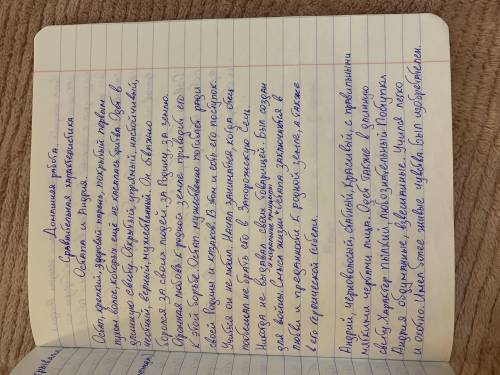 Домашняя работа.
Сравнительная характеристика
Остапа и Андрея.
Остап, крепкий, здоровый парень, покрытый первым
пухом волос, которых еще не касалась бритва. Одет в
длинную свиту. Открытый, упрямый, настойчивый,
честный, верный, мужественный. Он отважно
боролся за своих людей, за Родину, за землю.
Огромная любовь к родной земле приводит его
к этой борьбе. Остап мужественно погибает ради
своей Родины и казаков. В этом и есть его поступок.
Учиться он не любил. Начал заниматься, когда отец
пообещал не брать его в Запорожскую Сечь.
Никогда не выдавал своих товарищей. Был создан
для войны. Смысл жизни Остапа заключается в
любви и преданности к родной земле, а также
в его героической гибели.
Андрий, черноволосый, статный, красивый, с правильными
мягкими чертами лица. Одет также в длинную
свиту. Характер пылкий, Поступки
Андрия обдуманные, взвешенные. Учился легко
и охотно. Имел более живые чувства. Был изобретателен.